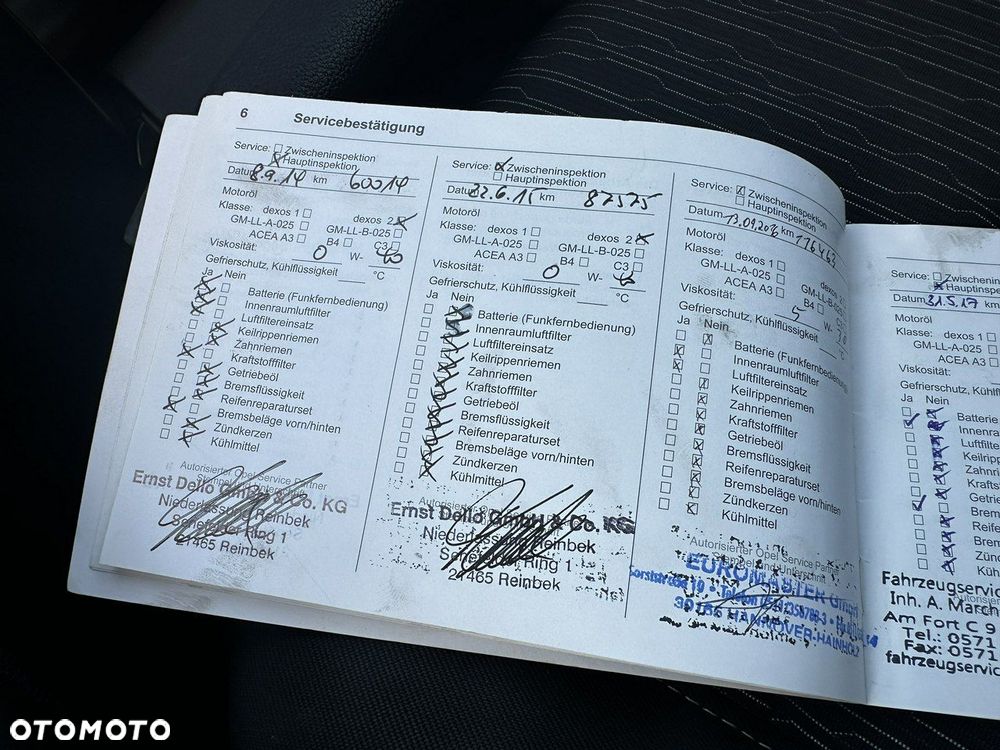 6 Servicebestätigung
Service: Zwischeninspektion
Hauptinspektion
Datum 8.9.14 km 60014
Motoröl
Klasse: dexos 1 dexos 2
GM-LL-A-025 GM-LL-B-025
ACEA A3 B4 C3
Viskosität: 0 W-
Gefrierschutz, Kühlflüssigkeit °C
Ja Nein
Batterie (Funkfernbedienung)
Innenraumluftfilter
Luftfiltereinsatz
Keilrippenriemen
Zahnriemen
Kraftstofffilter
Getriebeöl
Bremsflüssigkeit
Reifenreparaturset
Bremsbeläge vorn/hinten
Zündkerzen
Kühlmittel
Autorisierter Opel Service Partner
Ernst Dello GmbH & Co. KG
Niederlassung Reinbek
Ring 1
21465 Reinbek
Service: Zwischeninspektion
Hauptinspektion
Datum 22.6.15 km 87575
Motoröl
Klasse: dexos 1 dexos 2
GM-LL-A-025 GM-LL-B-025
ACEA A3 B4 C3
Viskosität: 0 W-
Gefrierschutz, Kühlflüssigkeit °C
Ja Nein
Batterie (Funkfernbedienung)
Innenraumluftfilter
Luftfiltereinsatz
Keilrippenriemen
Zahnriemen
Kraftstofffilter
Getriebeöl
Bremsflüssigkeit
Reifenreparaturset
Bremsbeläge vorn/hinten
Zündkerzen
Kühlmittel
Ernst Dello GmbH & Co. KG
Niederlassung Reinbek
Ring 1
21465 Reinbek
Service: Zwischeninspektion
Hauptinspektion
Datum 13.09.2016 km 116463
Motoröl
Klasse: dexos 1 dexos 2
GM-LL-A-025 GM-LL-B-025
ACEA A3 B4 C3
Viskosität: 5 W-
Gefrierschutz, Kühlflüssigkeit °C
Ja Nein
Batterie (Funkfernbedienung)
Innenraumluftfilter
Luftfiltereinsatz
Keilrippenriemen
Zahnriemen
Kraftstofffilter
Getriebeöl
Bremsflüssigkeit
Reifenreparaturset
Bremsbeläge vorn/hinten
Zündkerzen
Kühlmittel
Autorisierter Opel Service Partner
EUROMASTER GmbH
HANNOVER-HAINHOLZ
Service: Zwischeninspektion
Hauptinspektion
Datum 31.5.17 km
Motoröl
Klasse: dexos 1
GM-LL-A-025
ACEA A3
Viskosität:
Gefrierschutz, Kühlflüssig
Ja Nein
Batterie
Innenra
Luftfilte
Keilrip
Zahnri
Kraftst
Getrie
Brems
Reifen
Brems
Zündk
Kühlm
Fahrzeugservic
Inh. A. March
Am Fort C 9
Tel.: 0571
Fax: 0571
fahrzeugservic
OTOMOTO